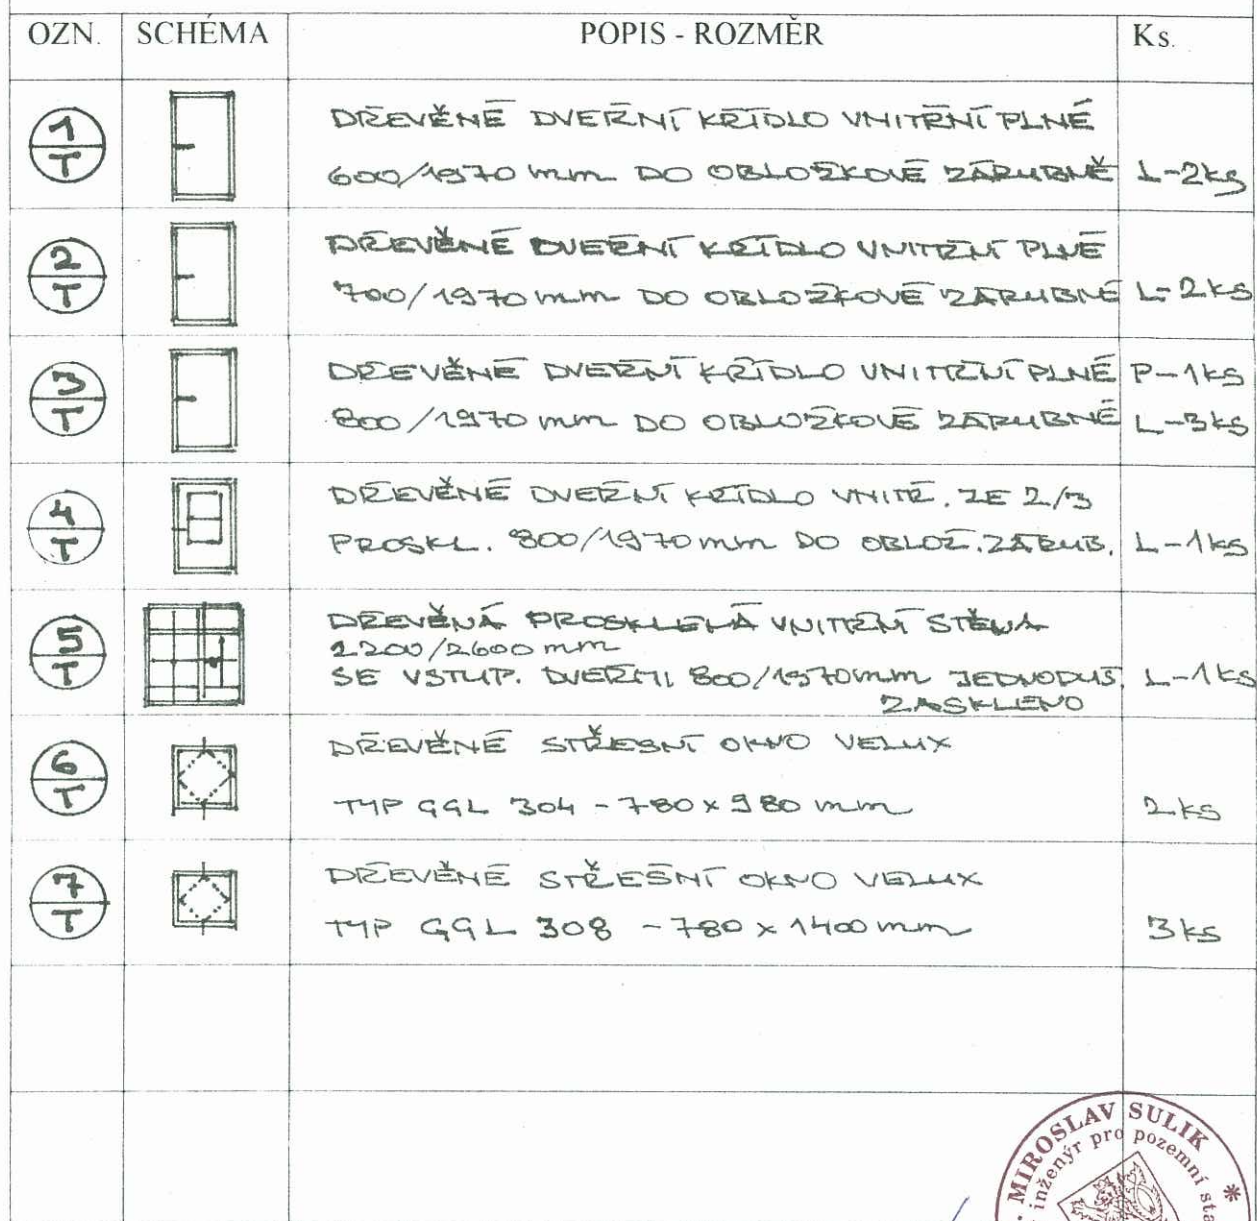 OZN. SCHÉMA POPIS - ROZMĚR Ks.
1 DŘEVĚNÉ DVEŘNÍ KŘÍDLO VNITŘNÍ PLNÉ
T 600/1970 mm DO OBLOŽKOVÉ ZÁRUBNĚ L-2ks
2 DŘEVĚNÉ DVEŘNÍ KŘÍDLO VNITŘNÍ PLNÉ
T 700/1970 mm DO OBLOŽKOVÉ ZÁRUBNĚ L-2ks
3 DŘEVĚNÉ DVEŘNÍ KŘÍDLO VNITŘNÍ PLNÉ P-1ks
T 800/1970 mm DO OBLOŽKOVÉ ZÁRUBNĚ L-3ks
4 DŘEVĚNÉ DVEŘNÍ KŘÍDLO VNITŘ. ZE 2/3
T PROSKL. 800/1970 mm DO OBLOŽ. ZÁRUB. L-1ks
5 DŘEVĚNÁ PROSKLENÁ VNITŘNÍ STĚNA
2200/2600 mm
T SE VSTUP. DVEŘMI 800/1970 mm JEDNODUŠ. L-1ks
ZASKLENO
6 DŘEVĚNÉ STŘEŠNÍ OKNO VELUX
T TYP GGL 304 - 780 x 980 mm 2ks
7 DŘEVĚNÉ STŘEŠNÍ OKNO VELUX
T TYP GGL 308 - 780 x 1400 mm 3ks
MIROSLAV SULIK *
inženýr pro pozemní sta